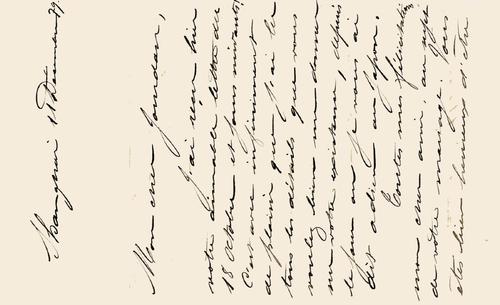 Shanghai 11 Décembre 79.
Mon cher Jourdan,
J'ai reçu hier
votre aimable lettre du
18 Octobre et jours suivants,
c'est avec infiniment
de plaisir que j'ai lu
tous les détails que vous
voulez bien me donner
sur votre existence, depuis
le jour où je vous ai
dit adieu au Japon.
Toutes mes félicitations
mon cher ami, au sujet
de votre mariage. Vous
êtes bien heureux d'être